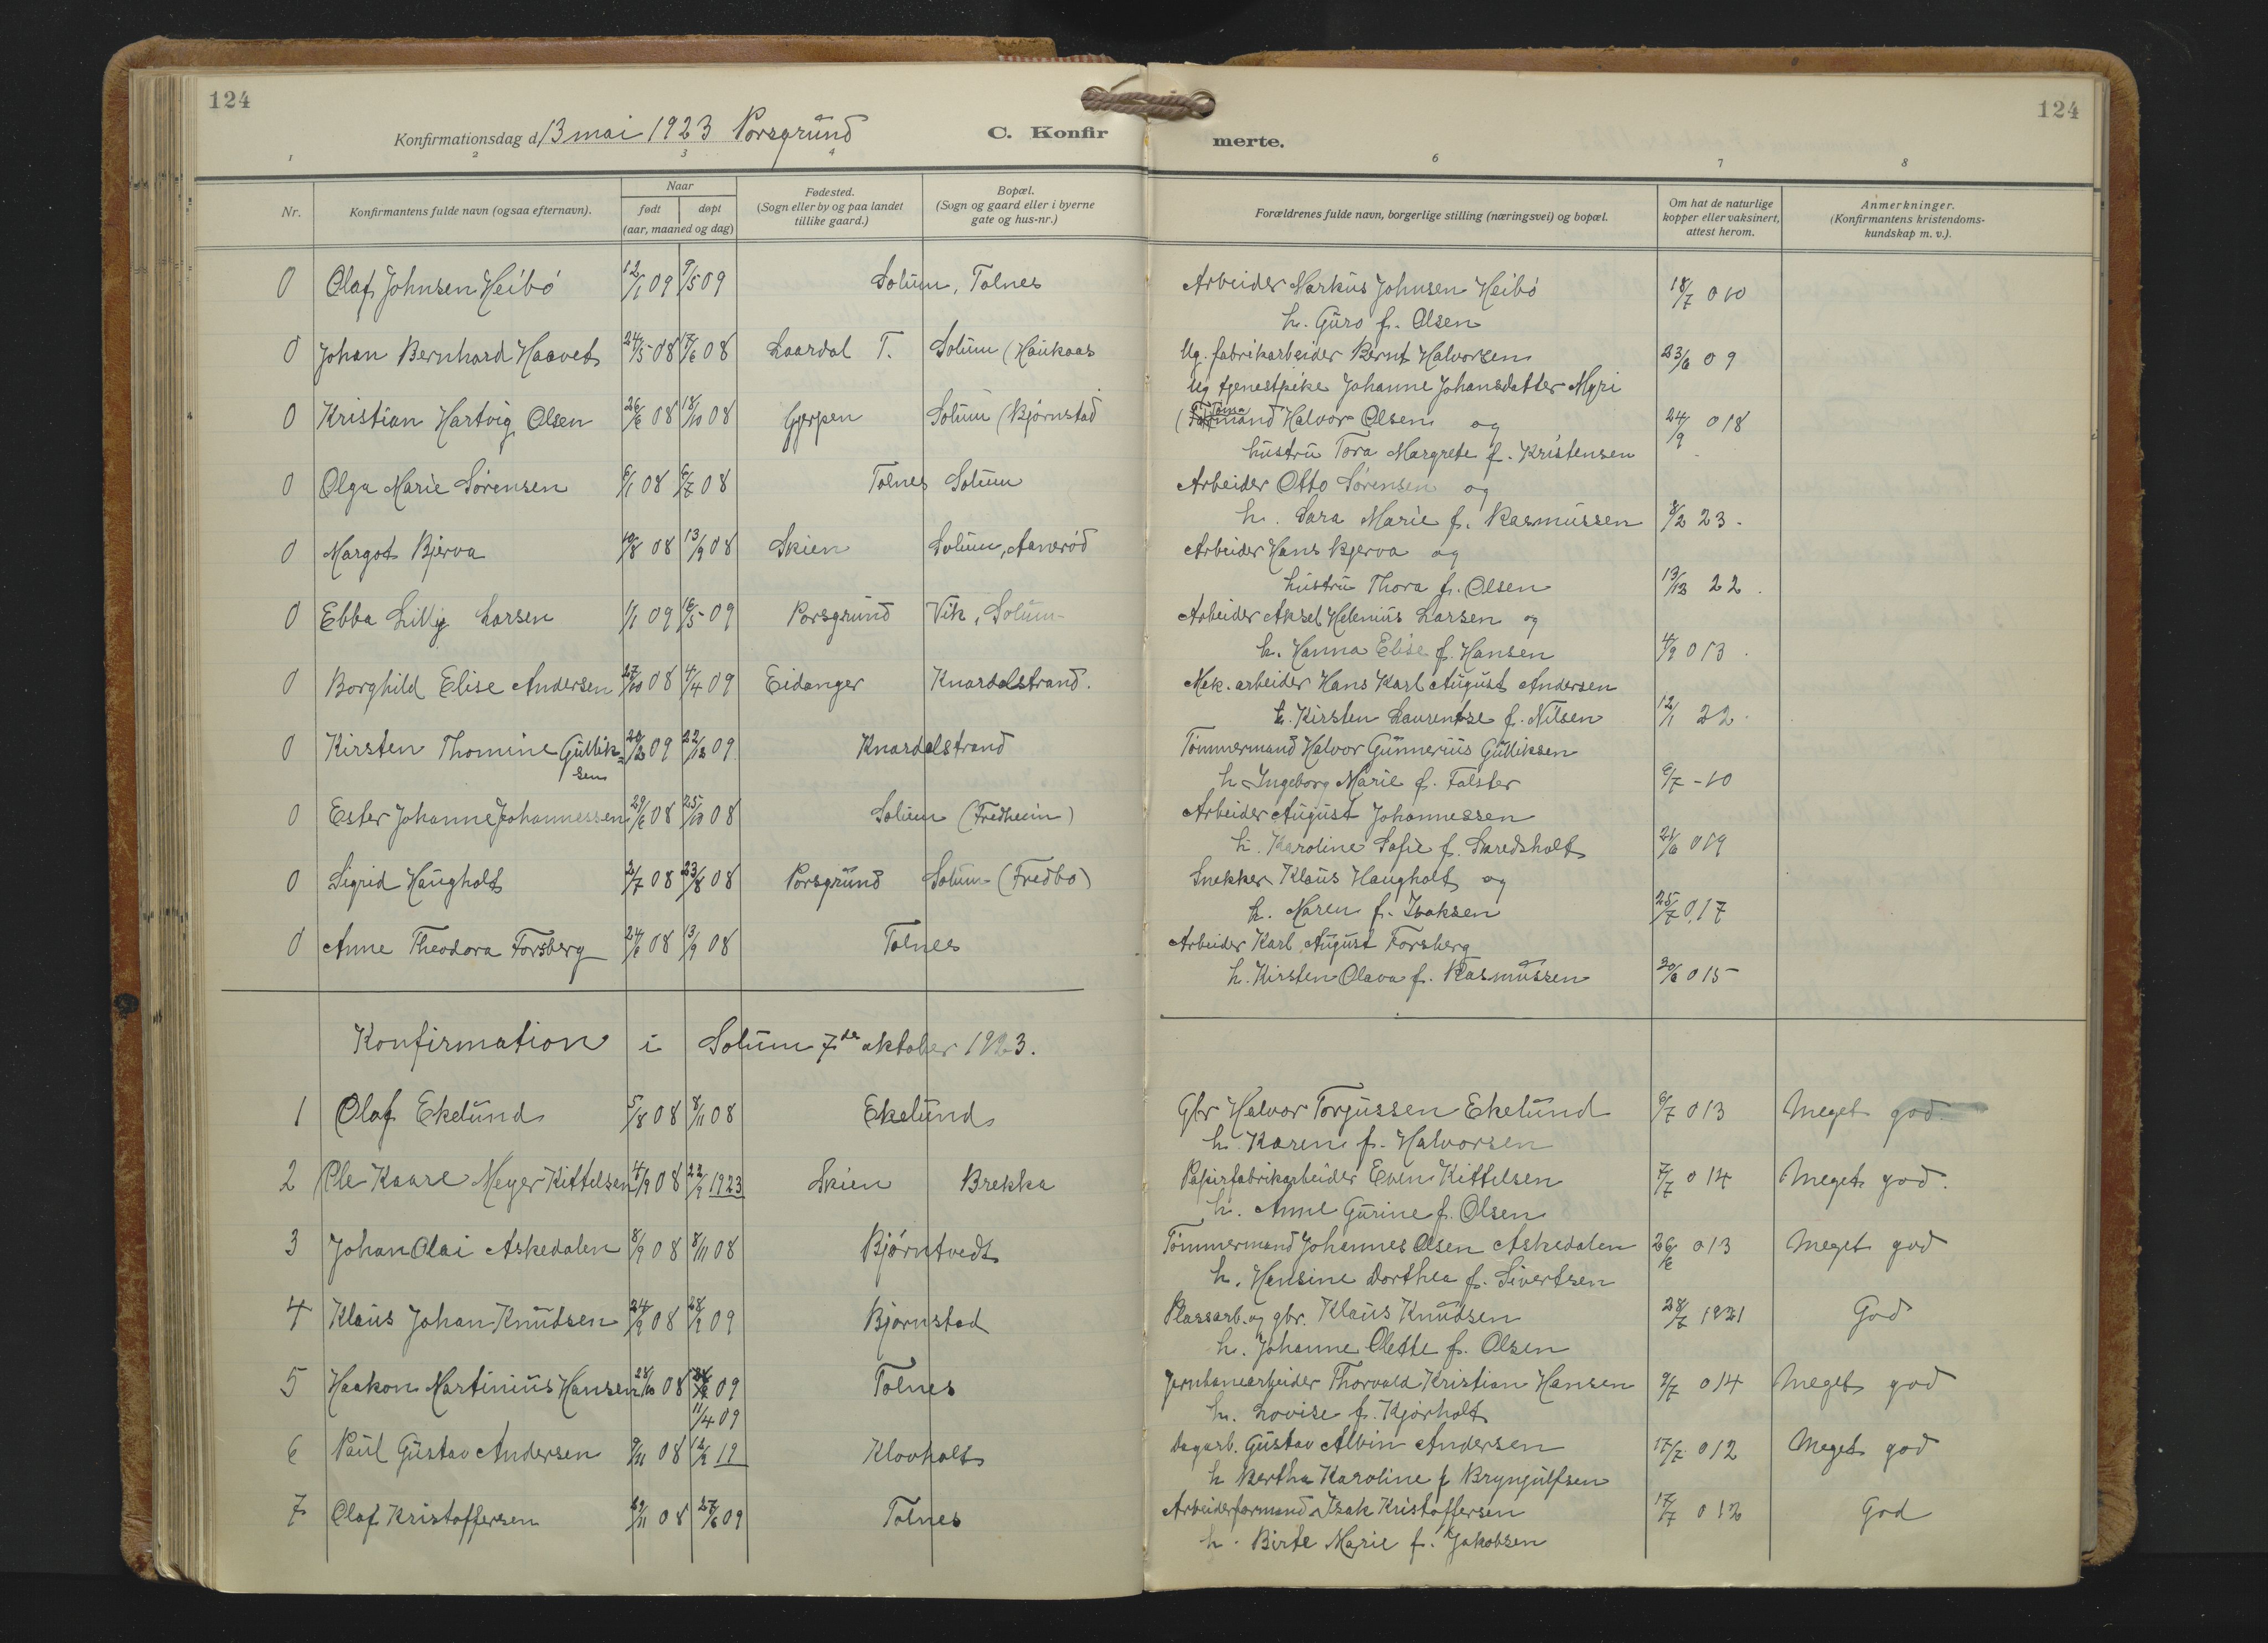 124
124
Konfirmationsdag d. 13 mai 1923 Porsgrund
C. Konfir
merte.
1 2 3 4 6 7 8
Nr.
Konfirmantens fulde navn (ogsaa efternavn).
Naar
født døpt
(aar, maaned og dag)
Fødested.
(Sogn eller by og paa landet
tillike gaard.)
Bopæl.
(Sogn og gaard eller i byerne
gate og hus-nr.)
Forældrenes fulde navn, borgerlige stilling (næringsvei) og bopæl.
Om hat de naturlige
kopper eller vaksinert,
attest herom.
Anmerkninger.
(Konfirmantens kristendoms-
kundskap m. v.).
0 Olaf Johnsen Heibö 12/1 09 9/5 09 Solum, Tolnes Arbeider Markus Johnsen Heibö 18/7 010
h. Guro f. Olsen
0 Johan Bernhard Haavet 24/5 08 17/6 08 Laardal T. Solum (Haukaas Ug. fabrikarbeider Bernt Halvorsen 23/6 09
Ug tjenestpike Johanne Johansdatter Myri
0 Kristian Hartvig Olsen 26/6 08 18/10 08 Gjerpen Solum (Bjørnstad mand Halvor Olsen og 24/9 018
hustru Tora Margrete f. Kristensen
0 Olga Marie Sörensen 6/1 08 6/7 08 Tolnes Solum Arbeider Otto Sörensen og
h. Sara Marie f. Rasmussen 8/2 23.
0 Margot Bjerva 10/8 08 13/9 08 Skien Solum, Arbeider Hans Bjerva og
hustru Thora f. Olsen 22.
0 Ebba Lilly Larsen 1/1 09 16/5 09 Porsgrund Vik, Solum Arbeider Aksel Helenius Larsen og
h. Hanna Elise f. Hansen 4/9 013.
0 Borghild Elise Andersen 27/10 08 4/4 09 Eidanger Knardalstrand. Mek. arbeider Hans Karl August Andersen
h. Kirsten Laurentse f. Nilsen 12/1 22.
0 Kirsten Thomine Gullik= 09 09 Knardalstrand Tömmermand Halvor Gunnerius Gulliksen
sen
h Ingeborg Marie f. Falster 9/7 - 10
0 Ester Johanne Johannessen 29/6 08 25/10 08 Solum (Fredheim) Arbeider August Johannessen
h. Karoline Sofie f. 21/6 019
0 Sigrid Haugholt 2/7 08 23/8 08 Porsgrund Solum (Fredbo) Snekker Klaus Haugholt og
h. Maren f. Isaksen 25/7 017
0 Anne Theodora Forsberg 24/6 08 13/9 08 Tolnes Arbeider Karl August Forsberg
h. Kirsten Olava f. Rasmussen 30/6 015
Konfirmation i Solum 7de oktober 1923.
1 Olaf Ekelund 5/8 08 8/11 08 Ekelund Gbr Halvor Torjussen Ekelund 9/7 013 Meget god.
h. Karen f. Halvorsen
2 Ole Kaare Meyer Kittelsen 4/9 08 22/9 1923 Skien Brekka Papirfabrikarbeider Even Kittelsen 7/7 014 Meget god.
h. Anne Gurine f. Olsen
3 Johan Olai Askedalen 8/9 08 8/11 08 Bjørntvedt Tömmermand Johannes Olsen Askedalen 26/6 013 Meget god
h. Hensine Dorthea f. Sivertsen
4 Klaus Johan Knudsen 24/9 08 28/2 09 Bjørnstad Plassarb. og gbr. Klaus Knudsen 28/7 1921 God
h. Johanne Olette f. Olsen
5 Haakon Martinius Hansen 28/10 08 09 Tolnes Jernbanearbeider Thorvald Kristian Hansen 9/7 014 Meget god
11/4 09
h. Lovise f. Kjørholt
6 Paul Gustav Andersen 9/11 08 19 Klovholt Dagarb. Gustav Albin Andersen 17/7 012 Meget god
h Bertha Karoline f Brynjulfsen
7 Olaf Kristoffersen 29/11 08 27/6 09 Tolnes Arbeiderformand Isak Kristoffersen 17/7 012 God
h. Birte Marie f. Jakobsen